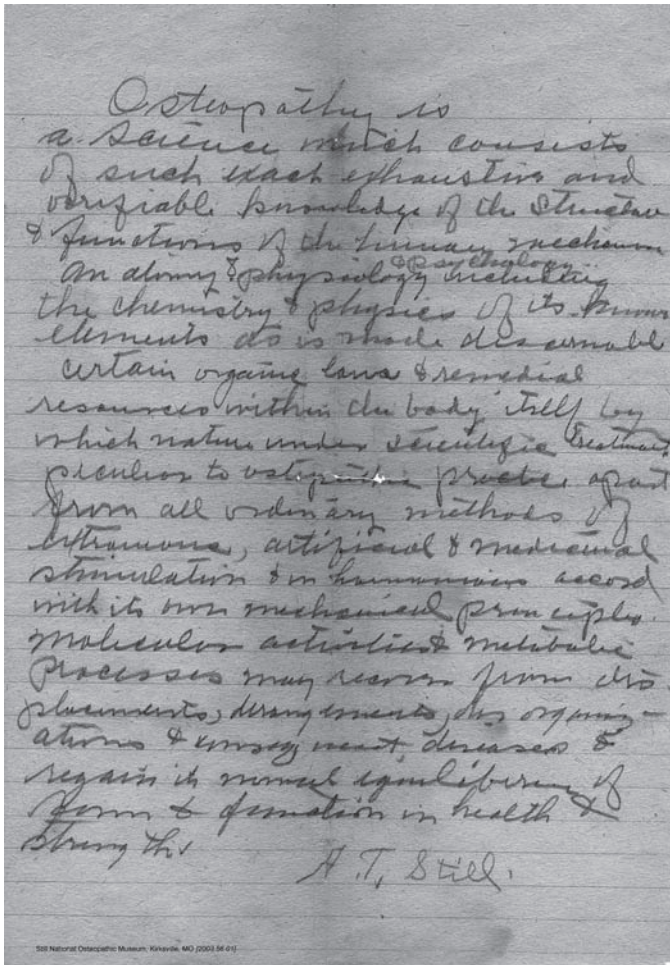 Osteopathy is
a science which consists
of such exact exhaustive and
verifiable knowledge of the structure
& functions of the human mechanism
& psychology
anatomy & physiology including
the chemistry & physics of its known
elements as is made discernable
certain organic laws & remedial
resources within the body itself by
which nature under scientific treatment
peculiar to osteopathic practice apart
from all ordinary methods of
extraneous, artificial & medicinal
stimulation & in harmonious accord
with its own mechanical principles.
molecular activities & metabolic
processes may recover from dis
placements, derangements, dis organiz-
ations & consequent diseases &
regain its normal equilibrium of
form & function in health &
strength.
A. T. Still.
Still National Osteopathic Museum, Kirksville, MO [2003.56.01]